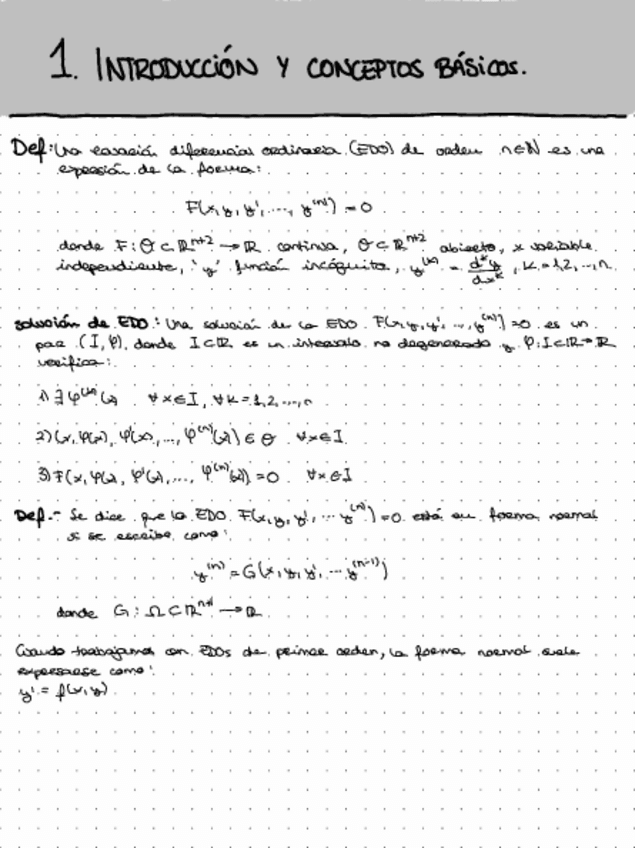 1. INTRODUCCIÓN Y CONCEPTOS BÁSICOS.
Def: Una ecuación diferencial ordinaria (EDO) de orden n∈ℕ es una
expresión de la forma:
F(x, y, y', ..., y⁽ⁿ⁾) = 0
donde F: Θ ⊂ ℝⁿ⁺² → ℝ continua, Θ ⊂ ℝⁿ⁺² abierto, x variable
independiente, 'y' función incógnita, y⁽ᵏ⁾ = dᵏy/dxᵏ, k = 1,2, ..., n.
Solución de EDO: Una solución de la EDO F(x, y, y', ..., y⁽ⁿ⁾) = 0 es un
par (I, φ), donde I⊂ℝ es un intervalo no degenerado y φ: I⊂ℝ→ℝ
verifica:
1) ∃ φ⁽ᵏ⁾(x) ∀x∈I, ∀k = 1,2, ..., n
2) (x, φ(x), φ'(x), ..., φ⁽ⁿ⁾(x)) ∈ Θ ∀x∈I
3) F(x, φ(x), φ'(x), ..., φ⁽ⁿ⁾(x)) = 0 ∀x∈I
Def.- Se dice que la EDO F(x, y, y', ... y⁽ⁿ⁾) = 0 está en forma normal
si se escribe como:
y⁽ⁿ⁾ = G(x, y, y', ... y⁽ⁿ⁻¹⁾)
donde G: Ω ⊂ ℝⁿ⁺¹ → ℝ
Cuando trabajamos con EDOs de primer orden, la forma normal suele
expresarse como:
y' = f(x, y)